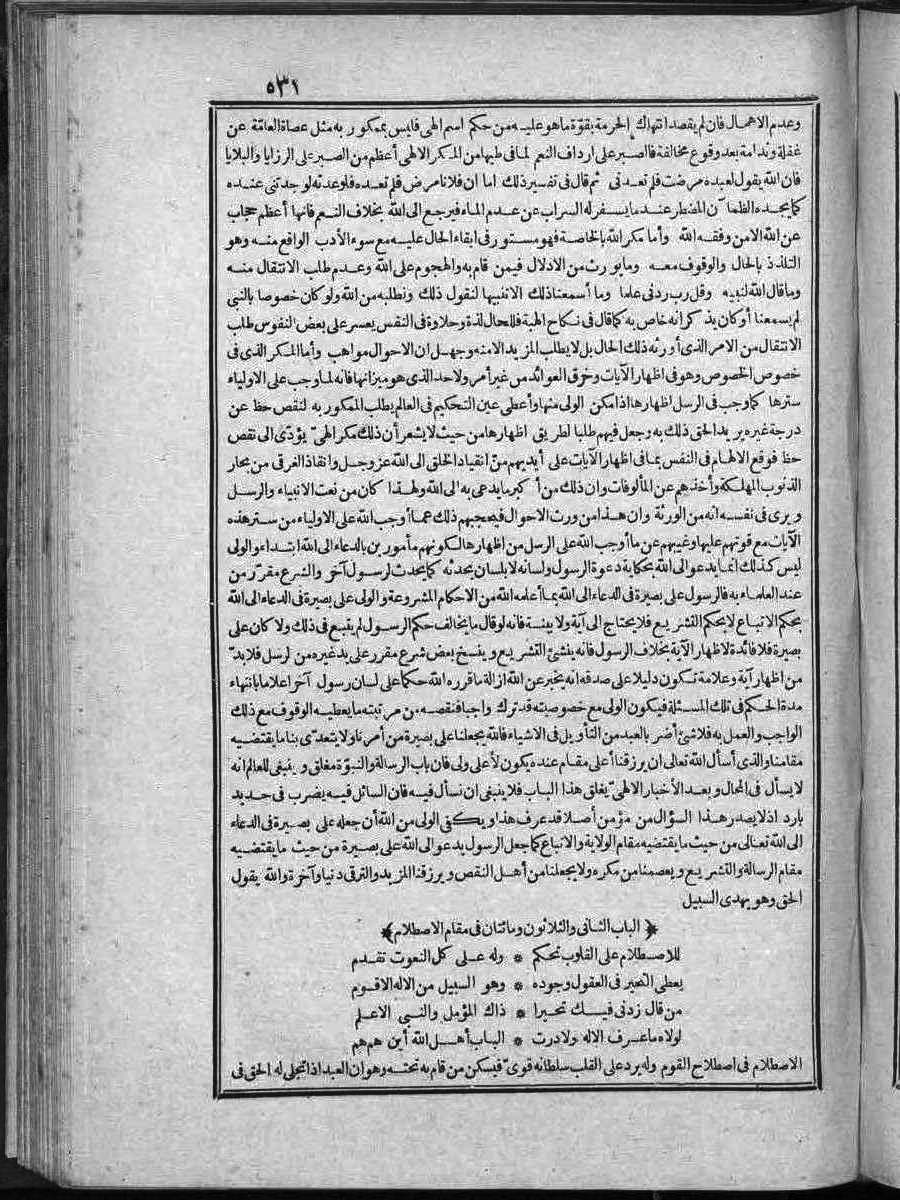 ٥٣١
وعدم الاهمال فان لم يقصد انتهاك الحرمة بقوّة ماهو عليه من حكم اسم الهى فليس بممكور به مثل عصاة العامّة عن
غفلة وندامة بعد وقوع مخالفة فالصبر على ارداف النعم لما فى طيها من المكر الالهى أعظم من الصبر على الرزايا والبلايا
فان الله يقول لعبده مرضت فلم تعدنى ثم قال فى تفسير ذلك اما ان فلانا مرض فلم تعده فلوعدته لوجدتنى عنده
كما يجده الظمآن المضطر عندما يسفر له السراب عن عدم الماء فيرجع الى الله بخلاف النعم فانها أعظم حجاب
عن الله الامن وفقه الله وأما مكر الله بالخاصة فهو مستور فى ابقاء الحال عليه مع سوء الأدب الواقع منه وهو
التلذذ بالحال والوقوف معه ومايورث من الادلال فيمن قام به والهجوم على الله وعدم طلب الانتقال منه
وما قال الله لنبيه وقل رب زدنى علما وما أسمعنا ذلك الا تنبيها لنقول ذلك ونطلبه من الله ولو كان خصوصا بالنبى
لم يسمعنا أو كان يذكر انه خاص به كما قال فى نكاح الهبة فللحال لذة وحلاوة فى النفس يعسر على بعض النفوس طلب
الانتقال من الامر الذى أورثه ذلك الحال بل لا يطلب المزيد الامنه وجهل ان الاحوال مواهب وأما المكر الذى فى
خصوص الخصوص وهو فى اظهار الآيات وخرق العوائد من غير أمر ولا حد الذى هو ميزانها فانه لما وجب على الاولياء
سترها كما وجب فى الرسل اظهارها اذا مكن الولى منها وأعطى عين التحكيم فى العالم يطلب الممكور به لنقص حظ عن
درجة غيره يريد الحق ذلك به وجعل فيهم طلبا لطريق اظهارها من حيث لا يشعر أن ذلك مكر الهىّ يؤدّى الى نقص
حظ فوقع الالهام فى النفس بما فى اظهار الآيات على أيديهم من انقياد الخلق الى الله عز وجل وانقاذ الغرقى من بحار
الذنوب المهلكة وأخذهم عن المألوفات وان ذلك من أكبر ما يدعى به الى الله ولهذا كان من نعت الانبياء والرسل
ويرى فى نفسه انه من الورثة وان هذا من ورث الاحوال فيحجبهم ذلك عما أوجب الله على الاولياء من ستر هذه
الآيات مع قوتهم عليها وغيبهم عن ما أوجب الله على الرسل من اظهارها لكونهم مأمورين بالدعاء الى الله ابتداء والولى
ليس كذلك انما يدعو الى الله بحكاية دعوة الرسول ولسانه لا بلسان يحدثه كما يحدث لرسول آخر والشرع مقرّر من
عند العلماء به فالرسول على بصيرة فى الدعاء الى الله بما أعلمه الله من الاحكام المشروعة والولى على بصيرة فى الدعاء الى الله
بحكم الاتباع لا بحكم التشريع فلا يحتاج الى آية ولا بينة فانه لو قال ما يخالف حكم الرسول لم يتبع فى ذلك ولا كان على
بصيرة فلا فائدة لاظهار الآية بخلاف الرسول فانه ينشئ التشريع وينسخ بعض شرع مقرر على يد غيره من الرسل فلا بدّ
من اظهار آية وعلامة تكون دليلا على صدقه انه يخبر عن الله ازالة ما قرره الله حكما على لسان رسول آخر اعلاما بانتهاء
مدة الحكم فى تلك المسئلة فيكون الولى مع خصوصيته قد ترك واجبا فنقصه من مرتبته ما يعطيه الوقوف مع ذلك
الواجب والعمل به فلا شئ أضر بالعبد من التأويل فى الاشياء فالله يجعلنا على بصيرة من أمرنا ولا يتعدّى بنا ما يقتضيه
مقامنا والذى أسأل الله تعالى ان يرزقنا أعلى مقام عنده يكون لأعلى ولى فان باب الرسالة والنبوّة مغلق وينبغى للعالم انه
لا يسأل فى المحال وبعد الأخبار الالهىّ بغلق هذا الباب فلا ينبغى ان نسأل فيه فان السائل فيه يضرب فى حديد
بارد اذ لا يصدر هذا السؤال من مؤمن أصلا قد عرف هذا ويكفى الولى من الله أن جعله على بصيرة فى الدعاء
الى الله تعالى من حيث ما يقتضيه مقام الولاية والاتباع كما جعل الرسول يدعو الى الله على بصيرة من حيث ما يقتضيه
مقام الرسالة والتشريع ويعصمنا من مكره ولا يجعلنا من أهل النقص ويرزقنا المزيد والترقى دنيا وآخرة والله يقول
الحق وهو يهدى السبيل
﴿الباب الثانى والثلاثون ومائتان فى مقام الاصطلام﴾
للاصطلام على القلوب تحكم * وله على كل النعوت تقدم
يعطى التحير فى العقول وجوده * وهو السبيل من الاله الاقوم
من قال زدنى فيك تحيرا * ذاك المؤمل والنبى الاعلم
لولاه ما عرف الاله ولا درت * الباب أهل الله أين هم هم
الاصطلام فى اصطلاح القوم وله يرد على القلب سلطانه قوىّ فيسكن من قام به تحته وهو ان العبد اذا تجلى له الحق فى